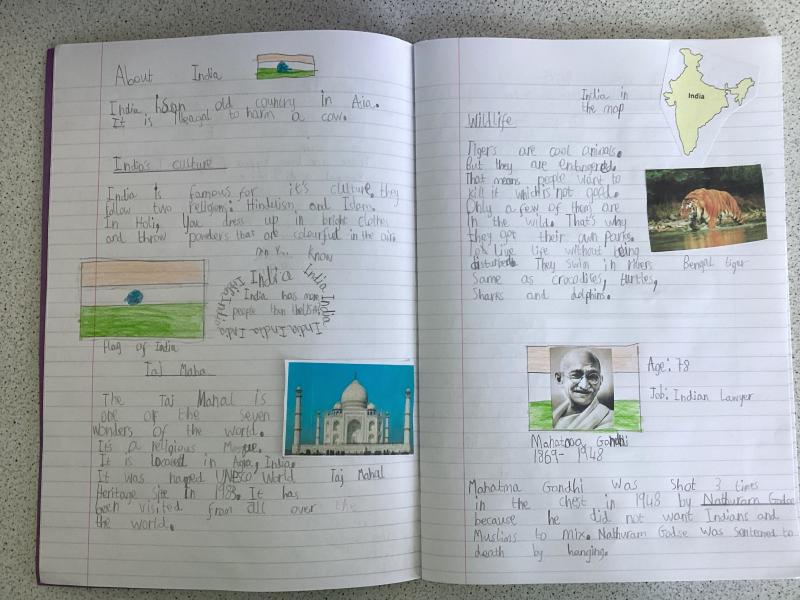 About India
India is an old country in Asia.
It is illeagal to harm a cow.
India's culture
India is famous for it's culture. they
follow two religion: Hinduism and Islam.
In Holi, You dress up in bright clothes
and throw powders that are colourful in the air.
Know
India India India
India has more
people than the
India India India
Flag of India
Taj Maha
The Taj Mahal is
one of the seven
wonders of the world.
It's a religious Mosque.
It is located in Agra, India.
It was named UNESCO World
Heritage Site in 1983. It has
been visited from all over the
the world.
Taj Mahal
India in
the map
India
Wildlife
Tigers are cool animals.
But they are endangered.
That means people want to
kill it which is not good.
Only a few of them are
in the wild. That's why
they got their own parks.
Let's live life without being
disturbed. They swim in rivers
Same as crocadiles, turtles,
Sharks and dolphins.
Bengal tiger
Age: 78
Job: Indian Lawyer
Mahatma Gandhi
1869- 1948
Mahatma Gandhi was shot 3 times
in the chest in 1948 by Nathuram Godse
because he did not want Indians and
Muslims to mix. Nathuram Godse was sentenced to
death by hanging.